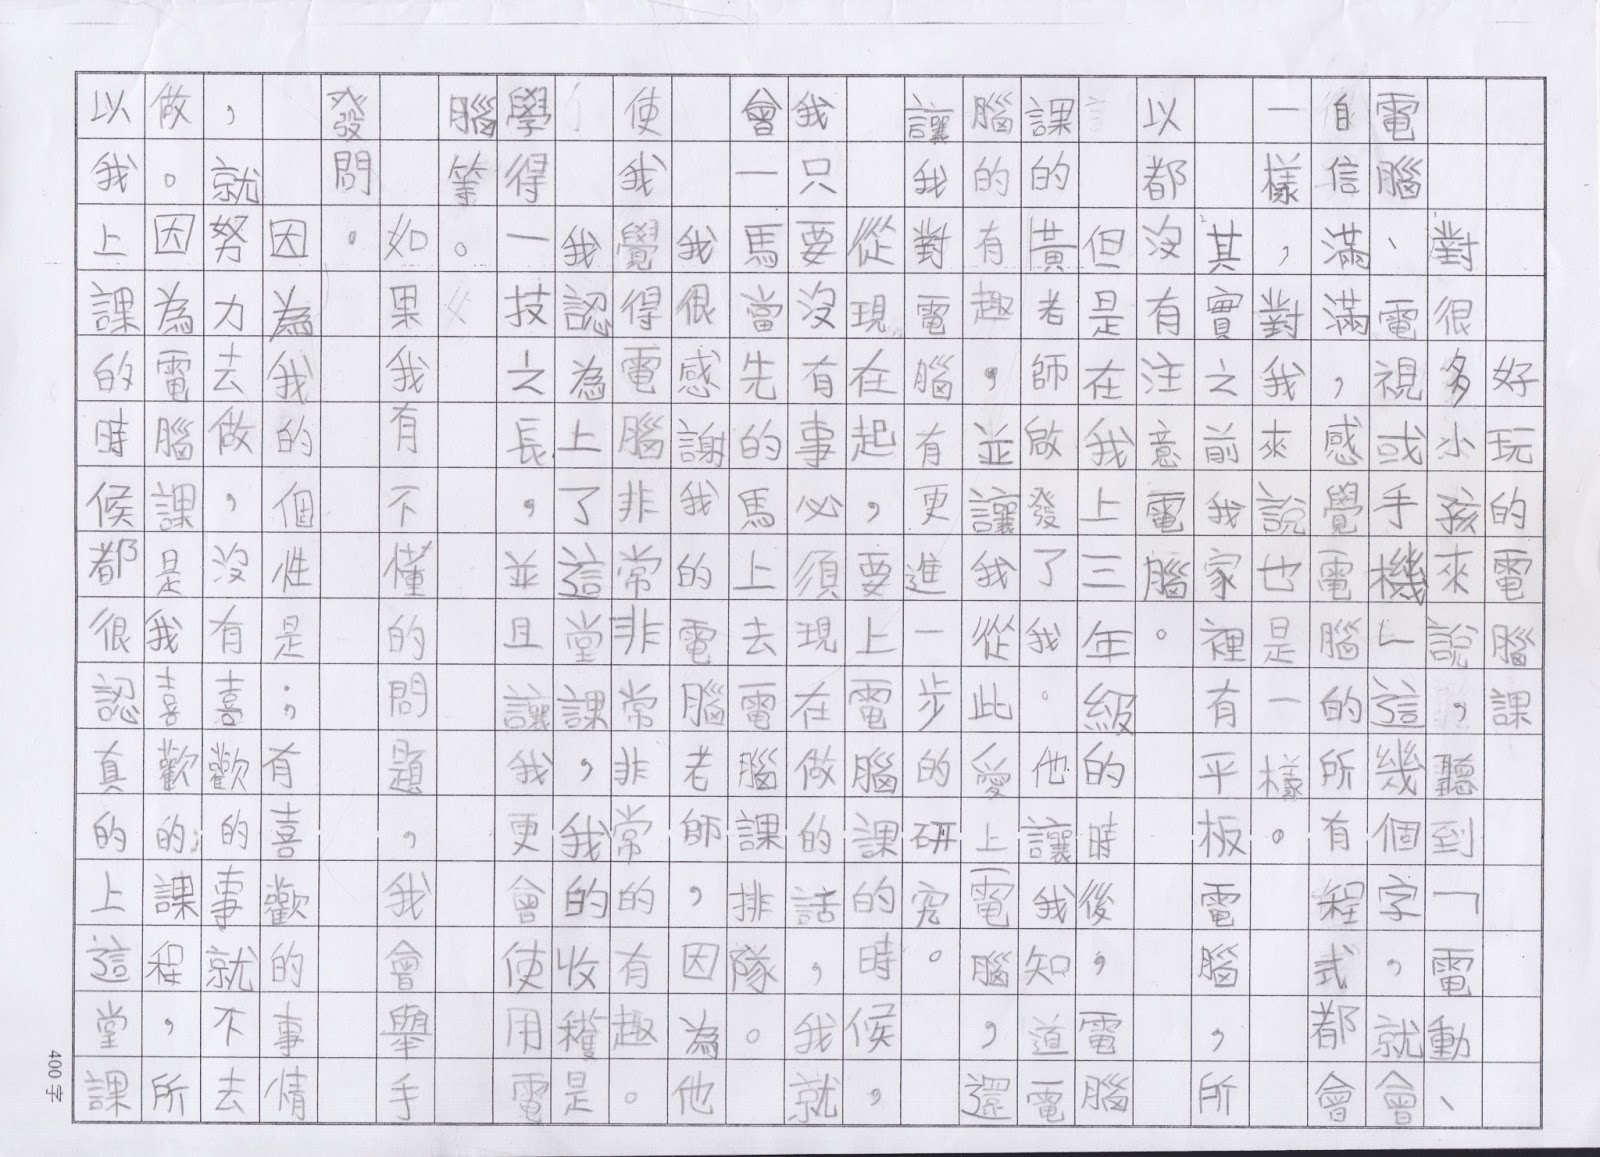 好玩的電腦課
對很多小孩來說，聽到「電動、
電腦、電視或手機」這幾個字，就會
自信滿滿，感覺電腦的所有程式都會
一樣，對我來說也是一樣。
其實之前我家裡有平板電腦，所
以都沒有注意電腦。
但是在我上三年級的時後，電腦
課的黃老師啟發了我。他讓我知道電
腦的有趣，並讓我從此愛上電腦，還
讓我對電腦有更進一步的研究。
從現在起，要上電腦課的時候，
我只要沒有事必須現在做的話，我就
會一馬當先的馬上去電腦課排隊。
我很感謝我的電腦老師，因為他
使我覺得電腦非常非常非常的有趣。
我認為上了這堂課，我的收穫是
學得一技之長，並且讓我更會使用電
腦等。
如果我有不懂的問題，我會舉手
發問。
因為我的個性是；有喜歡的事情
，就努力去做，沒有喜歡的事就不去
做。因為電腦課是我喜歡的課程，所
以我上課的時候都很認真的上這堂課
400字